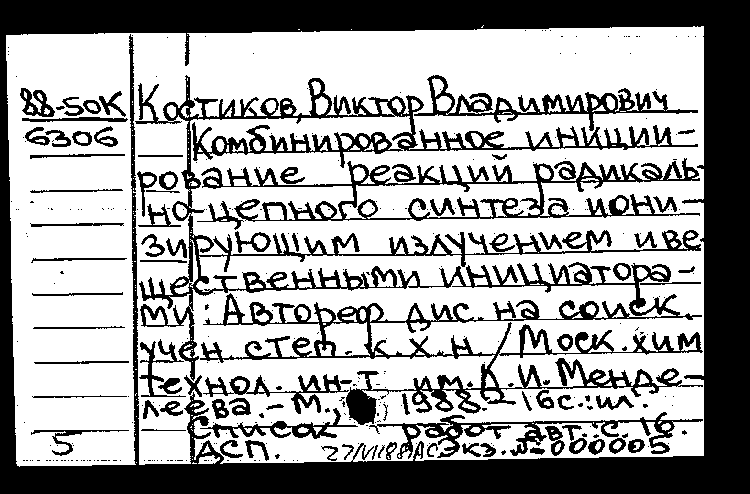 88-50К Костиков, Виктор Владимирович
6306 Комбинированное иниции-
рование реакций радикаль-
но-цепного синтеза иони-
зирующим излучением и ве-
щественными инициатора-
ми: Автореф дис. на соиск.
учен степ. к.х.н. / Моск. хим
технол. ин-т им. Д.И. Менде-
леева. - М., 1988. - 16с.: ил.
Список работ авт.: с 16.
5 ДСП. Экз. № 000005